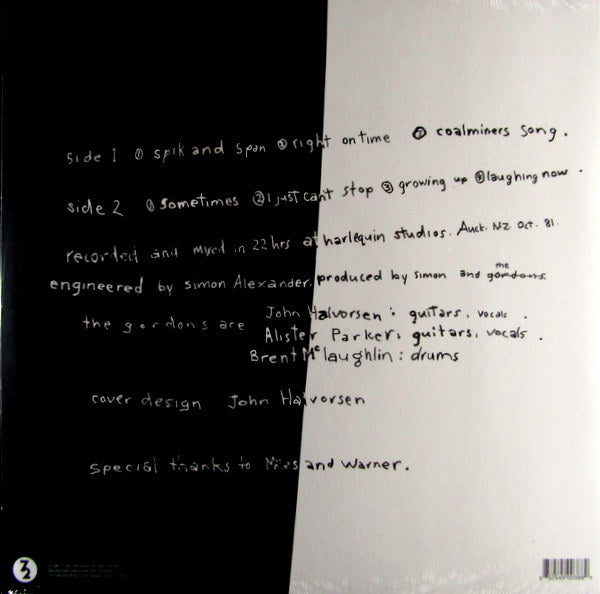 side 1 ① spik and span ② right on time ③ coalminers song.
side 2 ① sometimes ② I just can't stop ③ growing up ④ laughing now.
recorded and mixed in 22 hrs at harlequin studios. Auck. NZ. Oct. 81.
engineered by simon Alexander. produced by simon and the gordons
the gordons are John Halvorsen: guitars, vocals.
Alister Parker: guitars, vocals.
Brent McLaughlin: drums
cover design John Halvorsen
special thanks to and Warner.
32